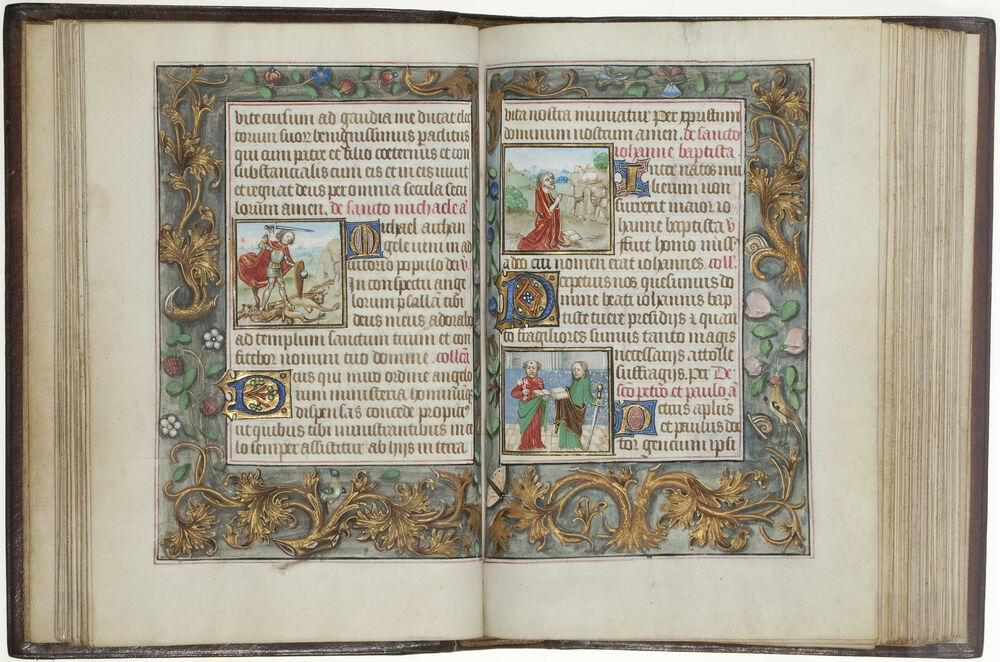 vite cursum ad gaudia me ducat elec
torum suor benignissimus paclitus
qui cum patre et filio coeternus et con
substancialis cum eis et in eis viuit
et regnat deus per omnia secula secu
lorum amen. de sancto michaele a
Michael archan
gele veni in ad
iutorio populo dei v
In conspectu ange
lorum psallā tibi
deus meus adorabo
ad templum sanctum tuum et con
fitebor nomini tuo domine. collcā
Deus qui miro ordine angelo
rum misteria hominūqz
dispensas concede propici
ut quibus tibi ministrantibus in ce
lo semper assistitur ab hijs in terra
vita nostra muniatur per xpristum
dominum nostrum amen. de sancto
iohanne baptista.
Inter natos mu
lierum non
surrexit maior io
hanne baptista v
ffuit homo miss9
a deo cui nomen erat iohannes. coll.
Perpetuis nos quesumus do
mine beati iohannis bap
tiste tuere presidijs & quan
to fragiliores sumus tanto magis
necessarijs attolle
suffragijs. per De
sco petro et paulo a
Petrus aplus
et paulus doc
tor gencium ipsi